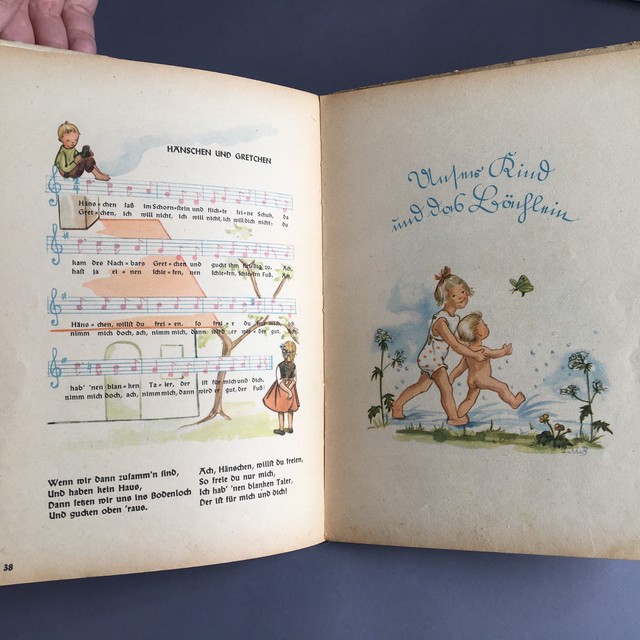 HÄNSCHEN UND GRETCHEN
Häns=chen saß im Schorn=stein und flick=te sei=ne Schuh, da
Gret=chen, ich will nicht, ich will nicht, ich will dich nicht; du
kam des Nach=bars Gret=chen und guckt ihm flei=ßig zu. Ach,
hast ja ei=nen schie=fen, nen schie=fen, schie=fen Fuß. Ach
Häns=chen, willst du frei=en, so frei=e du nur mich, ich
nimm mich doch, ach, nimm mich, dann wird er wie=der gut,
hab' 'nen blan=ken Ta=ler, der ist für mich und dich.
nimm mich doch, ach, nimm mich, dann wird er gut, der Fuß!
Wenn wir dann zusamm'n sind,
Und haben kein Haus,
Dann setzen wir uns ins Bodenloch
Und gucken oben 'raus.
Ach, Hänschen, willst du freien,
So freie du nur mich,
Ich hab' 'nen blanken Taler,
Der ist für mich und dich!
38
Unser Kind
und das Bächlein